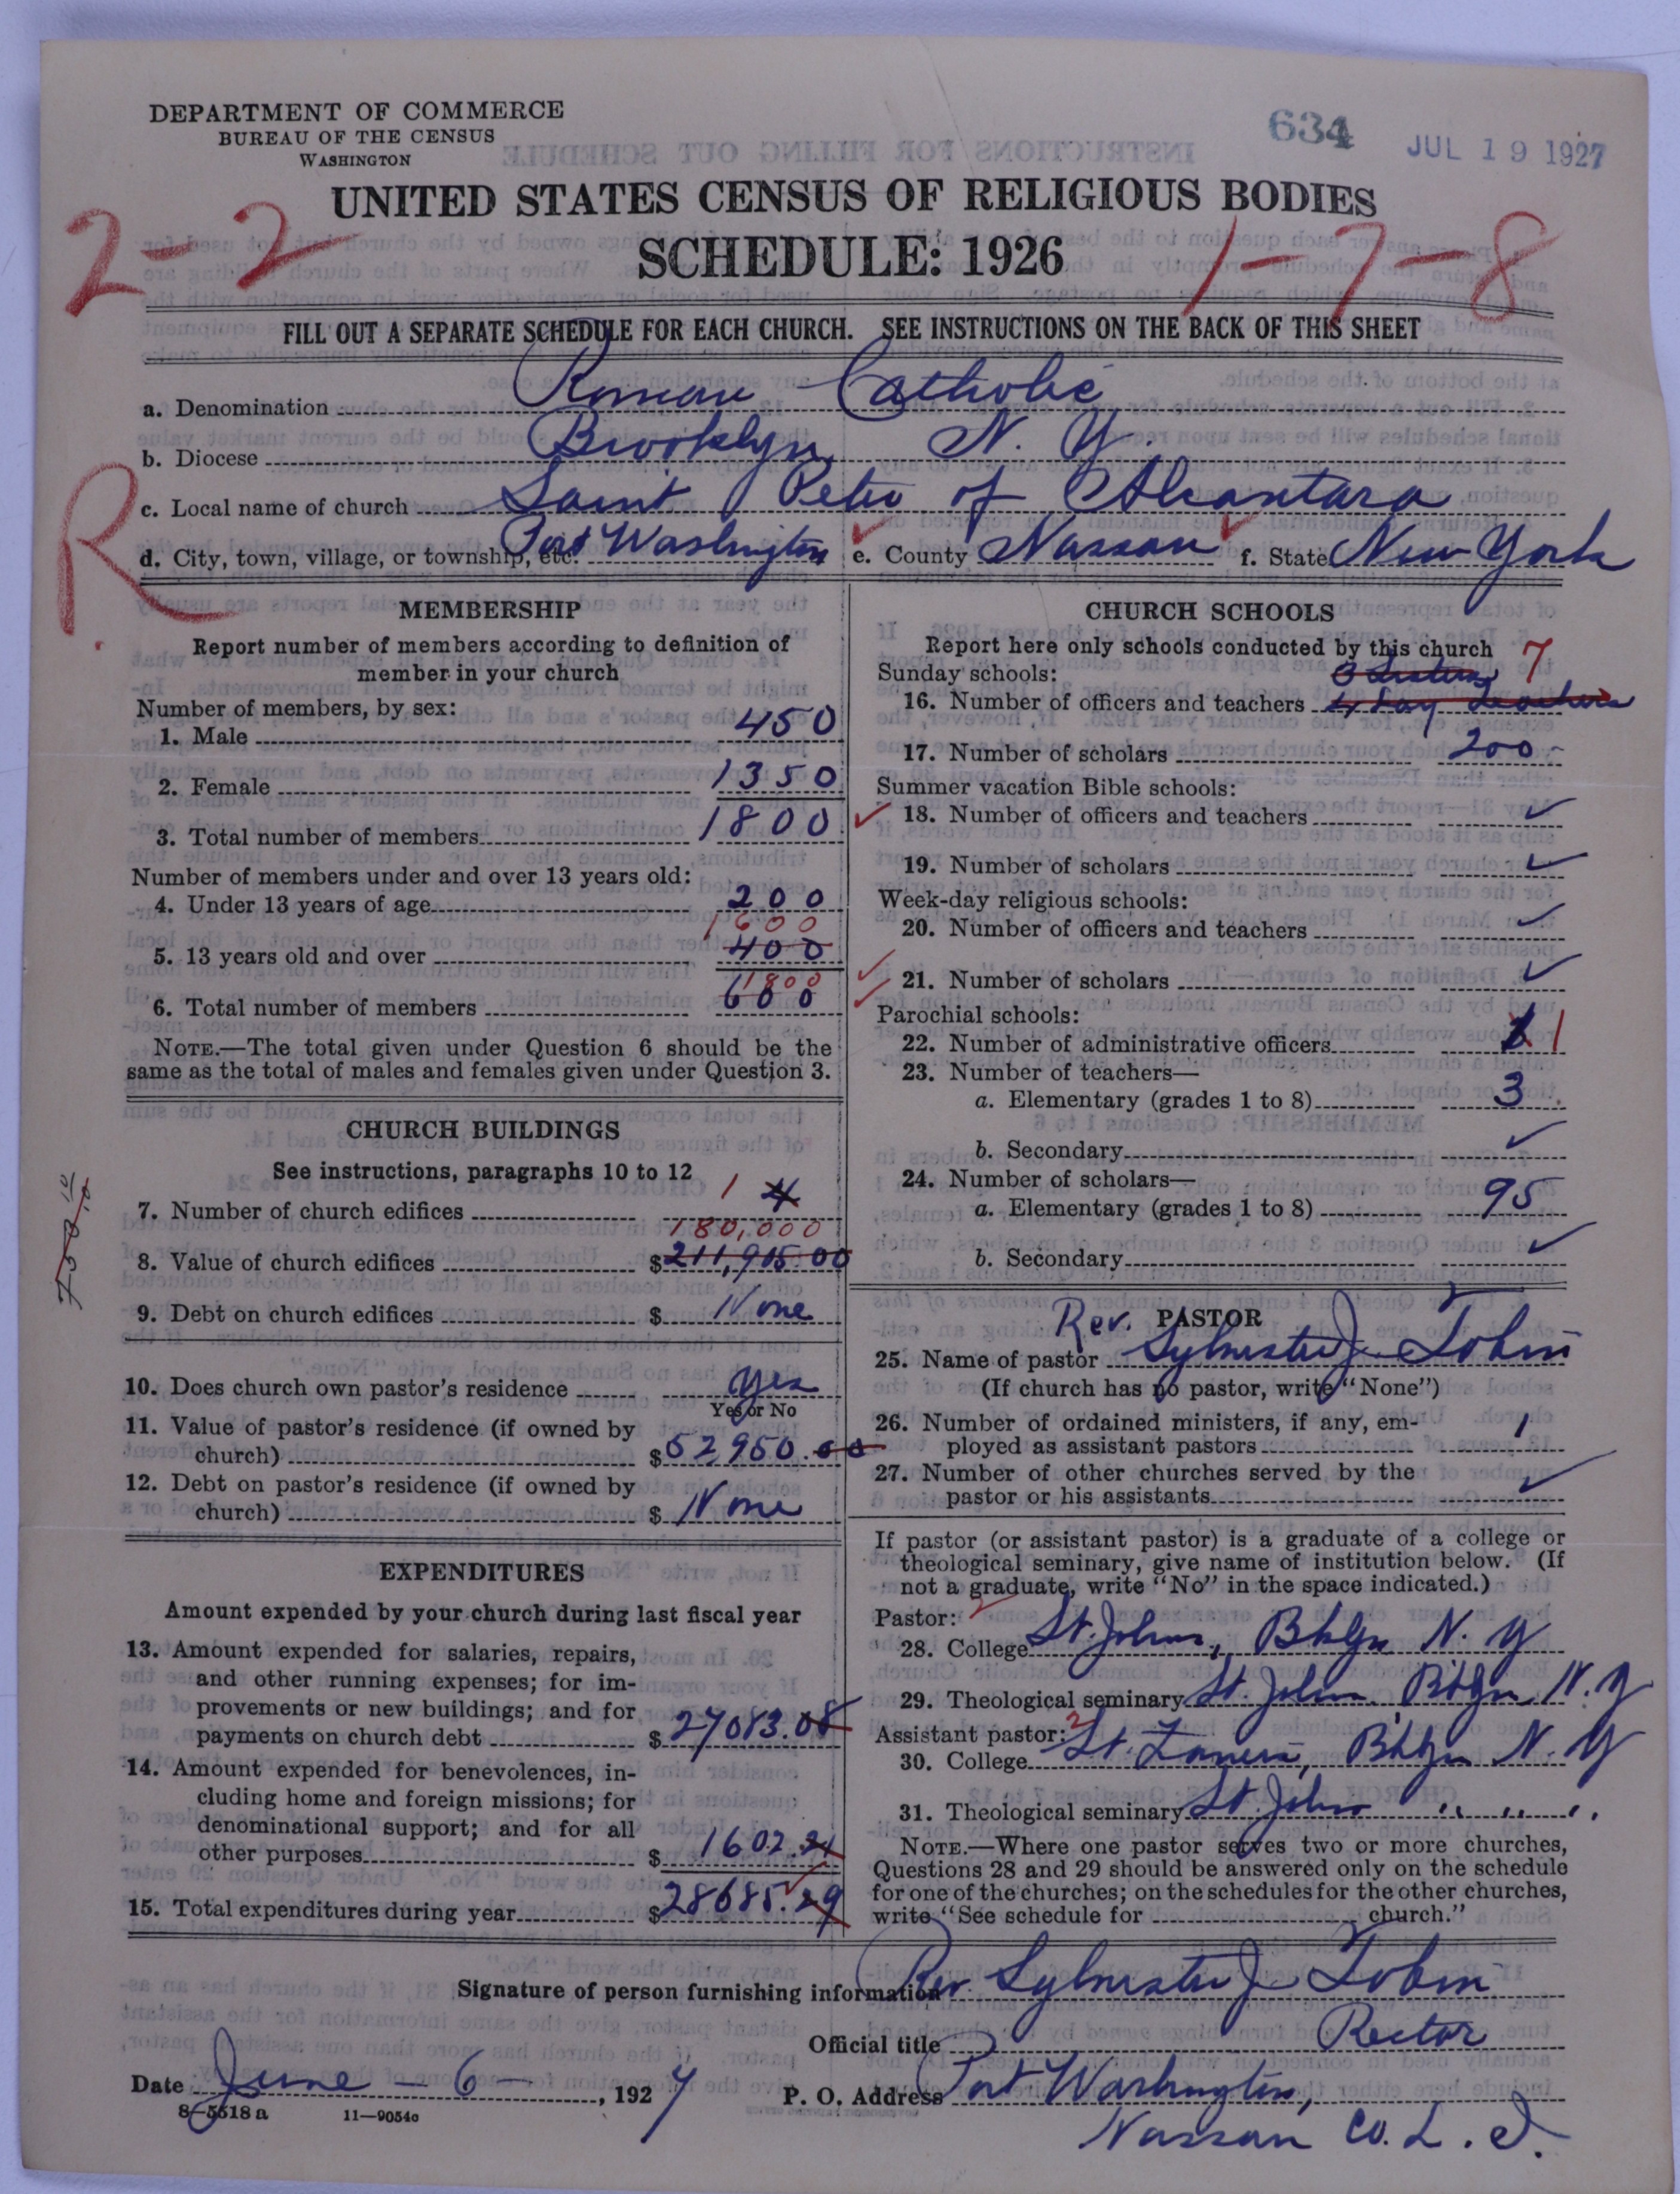 DEPARTMENT OF COMMERCE
BUREAU OF THE CENSUS
WASHINGTON
634 JUL 19 1927
UNITED STATES CENSUS OF RELIGIOUS BODIES
SCHEDULE: 1926
2-2
1-7-8
FILL OUT A SEPARATE SCHEDULE FOR EACH CHURCH. SEE INSTRUCTIONS ON THE BACK OF THIS SHEET
a. Denomination Roman Catholic
b. Diocese Brooklyn N. Y.
R
c. Local name of church Saint Peter of Alcantara
d. City, town, village, or township, etc. Port Washington e. County Nassau f. State New York
MEMBERSHIP
Report number of members according to definition of
member in your church
Number of members, by sex:
1. Male 450
2. Female 1350
3. Total number of members 1800
Number of members under and over 13 years old:
4. Under 13 years of age 200
1600
5. 13 years old and over 400
1800
6. Total number of members 600
NOTE.—The total given under Question 6 should be the
same as the total of males and females given under Question 3.
CHURCH BUILDINGS
See instructions, paragraphs 10 to 12
7. Number of church edifices 1 4
180,000
8. Value of church edifices $211,915.00
9. Debt on church edifices $ None
10. Does church own pastor's residence Yes
Yes or No
11. Value of pastor's residence (if owned by
church) $52950.00
12. Debt on pastor's residence (if owned by
church) $ None
EXPENDITURES
Amount expended by your church during last fiscal year
13. Amount expended for salaries, repairs,
and other running expenses; for im-
provements or new buildings; and for
payments on church debt $27083.08
14. Amount expended for benevolences, in-
cluding home and foreign missions; for
denominational support; and for all
other purposes $1602.21
15. Total expenditures during year $28685.29
CHURCH SCHOOLS
Report here only schools conducted by this church
Sunday schools: 3 Sisters 7
16. Number of officers and teachers 4 Lay Teachers
17. Number of scholars 200
Summer vacation Bible schools:
18. Number of officers and teachers ✓
19. Number of scholars ✓
Week-day religious schools:
20. Number of officers and teachers ✓
21. Number of scholars ✓
Parochial schools:
22. Number of administrative officers 1
23. Number of teachers—
a. Elementary (grades 1 to 8) 3
b. Secondary ✓
24. Number of scholars—
a. Elementary (grades 1 to 8) 95
b. Secondary ✓
PASTOR
25. Name of pastor Rev. Sylvester J. Tobin
(If church has no pastor, write "None")
26. Number of ordained ministers, if any, em-
ployed as assistant pastors 1
27. Number of other churches served by the
pastor or his assistants ✓
If pastor (or assistant pastor) is a graduate of a college or
theological seminary, give name of institution below. (If
not a graduate, write "No" in the space indicated.)
Pastor:
28. College St. Johns, Bklyn N. Y
29. Theological seminary St. Johns, Bklyn N. Y
Assistant pastor: 2
30. College St. Francis, Bklyn N. Y
31. Theological seminary St. Johns " " "
NOTE.—Where one pastor serves two or more churches,
Questions 28 and 29 should be answered only on the schedule
for one of the churches; on the schedules for the other churches,
write "See schedule for church."
Signature of person furnishing information Rev. Sylvester J. Tobin
Official title Rector
Date June - 6 -, 1927 P. O. Address Port Washington,
8-5518a 11-9054a
Nassau Co. L. I.